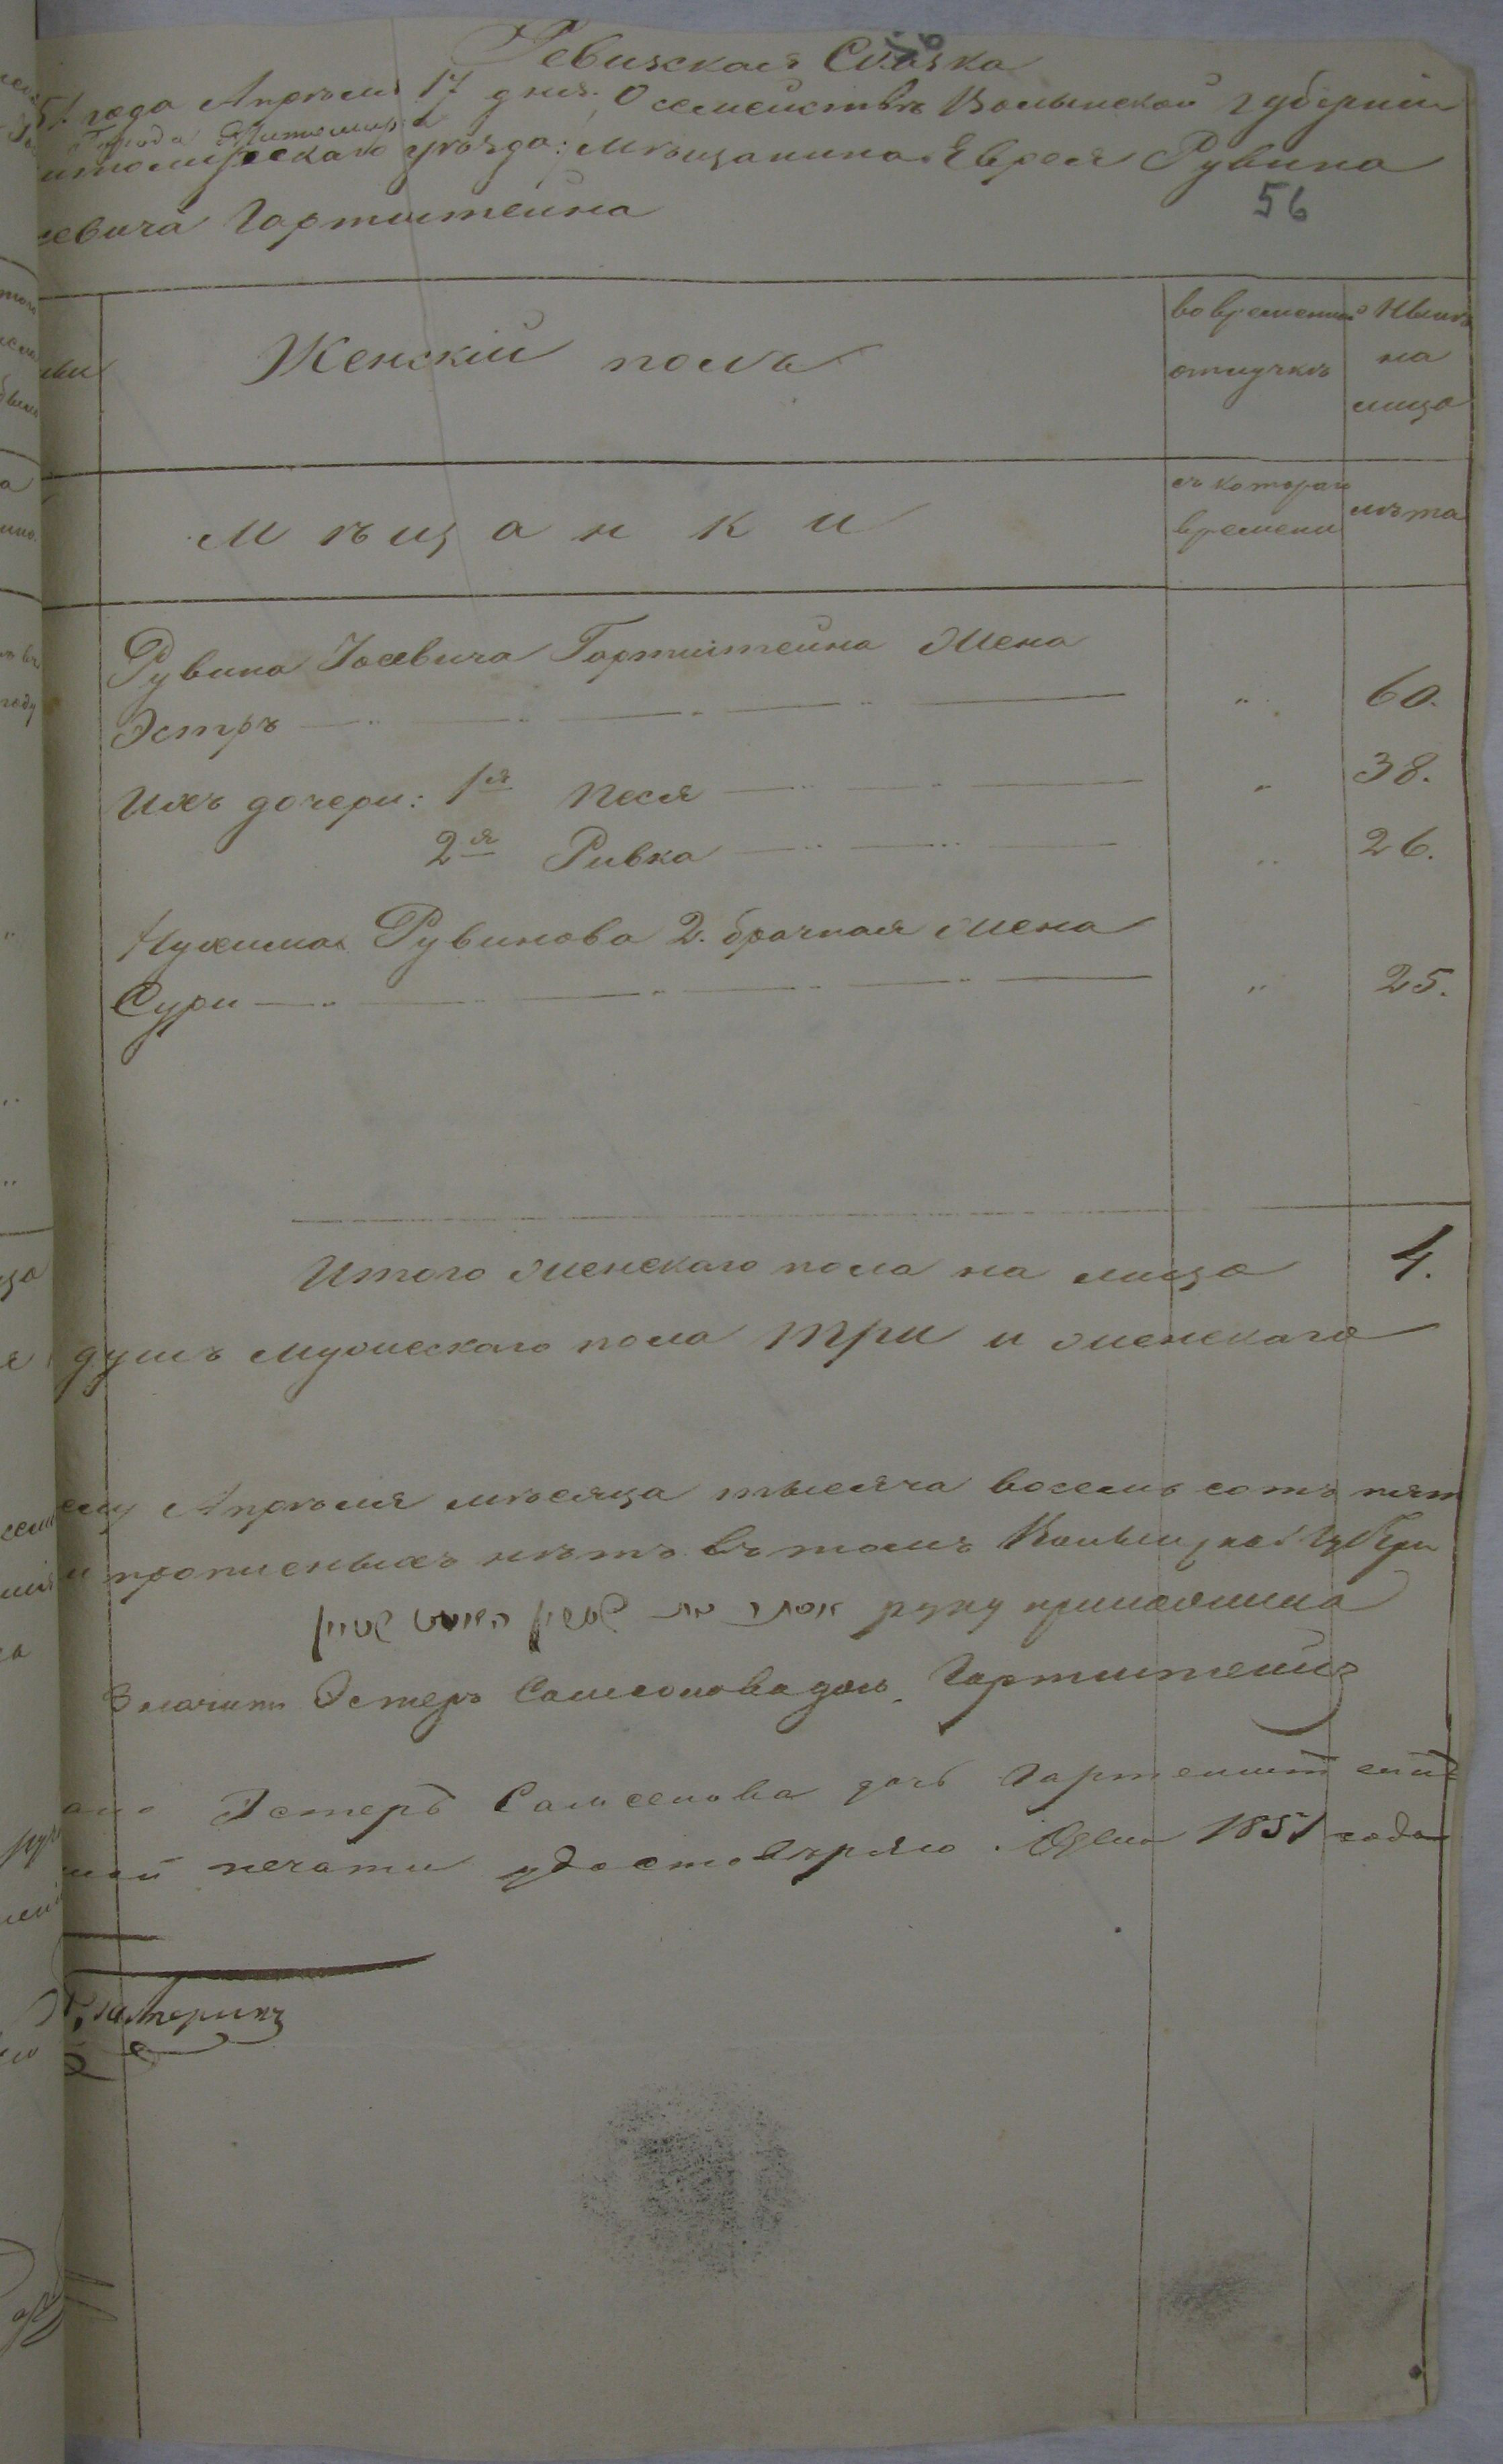 Ревизская Сказка
51 года Апреля 17 дня. О семействе Волынской губернии
Города Житомира
итомирскаго уѣзда: Мѣщанина Еврея Рувина
севича Гартштейна
56
Женскій полъ
во временной отлучкѣ
Нынѣ на лицо
Мѣщанки
съ котораго времени
лѣта
Рувина Іосевича Гартштейна Жена
Эстръ " 60.
Ихъ дочери: 1я Песя " 38.
2я Ривка " 26.
Нухима Рувинова 2. брачная жена
Сури " 25.
Итого женскаго пола на лицо 4.
душъ мужескаго пола три и женскаго
Апрѣля мѣсяца тысяча восемь сотъ пят
и прописныхъ нѣтъ въ томъ Волынской Губерн
אסתר בת שמשון הארטשטיין руку приложила
Значитъ Эстеръ Самсонова дочь Гартштейнъ
Эстеръ Самсонова дочь Гартштейнъ
печати удостовѣряю. 1851 года